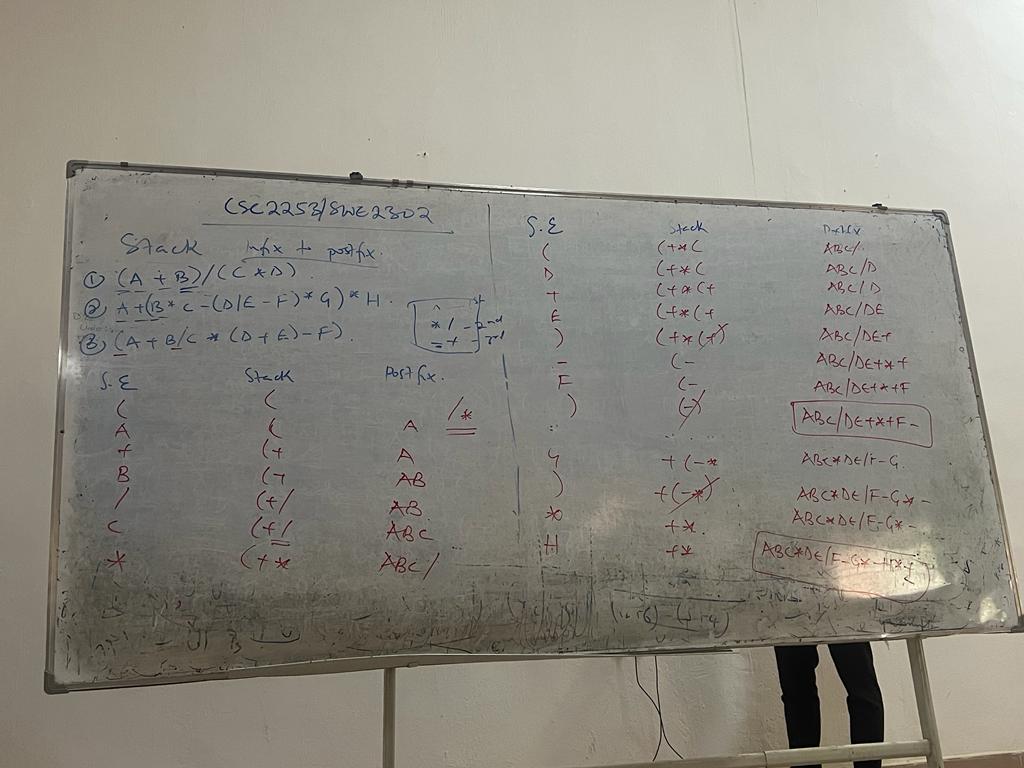 CSC2253/SWE2302
Stack infix to postfix
① (A + B)/(C*D).
② A+(B*C-(D/E-F)*G)*H.
③ (A + B/C * (D+E)-F).
^ - 1st
* / - 2nd
- + - 3rd
S.E Stack Postfix.
( (
A ( A
/*
+ (+ A
B (+ AB
/ (+/ AB
C (+/ ABC
* (+* ABC/
S.E Stack Postfix
( (+*( ABC/
D (+*( ABC/D
+ (+*(+ ABC/D
E (+*(+ ABC/DE
) (+*(+) ABC/DE+
- (- ABC/DE+*+
F (- ABC/DE+*+F
) (-) ABC/DE+*+F-
G +(-* ABC*DE/F-G
) +(-*) ABC*DE/F-G*-
* +* ABC*DE/F-G*-
H +* ABC*DE/F-G*-H*+